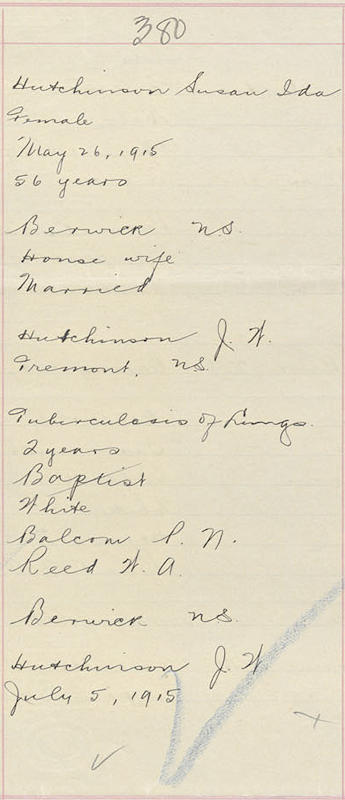 380
Hutchinson Susan Ida
Female
May 26, 1915
56 years
Berwick N.S.
House wife
Married
Hutchinson J. W.
Tremont, N.S.
Tuberculosis of Lungs.
2 years
Baptist
White
Balcom P. N.
Reed W. A.
Berwick N.S.
Hutchinson J. W
July 5, 1915